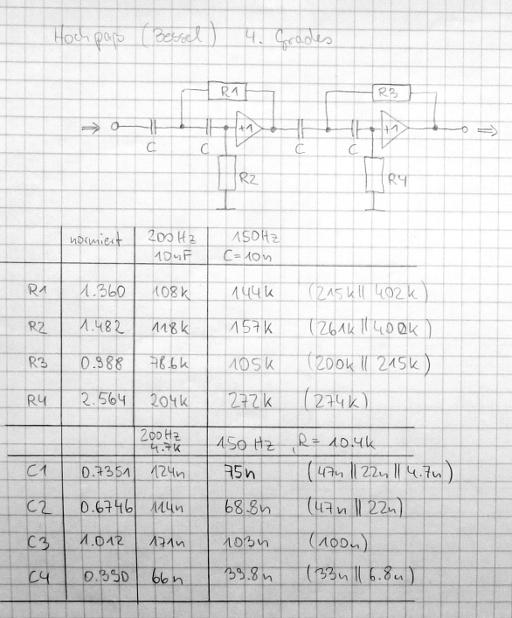 Hochpass (Bessel) 4. Grades
R1 R3
+1 +1
C C C C
R2 R4
normiert 200Hz 150Hz
10nF C=10n
R1 1.360 108k 144k (215k || 402k)
R2 1.482 118k 157k (261k || 400k)
R3 0.988 78.6k 105k (200k || 215k)
R4 2.564 204k 272k (274k)
200Hz 150 Hz, R= 10.4k
4.7k
C1 0.7351 124n 75n (47n || 22n || 4.7n)
C2 0.6746 114n 68.8n (47n || 22n)
C3 1.012 171n 103n (100n)
C4 0.390 66n 39.8n (33n || 6.8n)